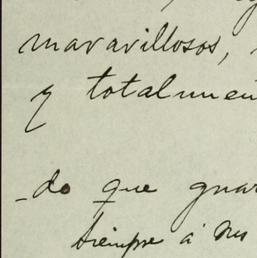 maravillosos,
y totalmen
-do que guar
siempre á sus